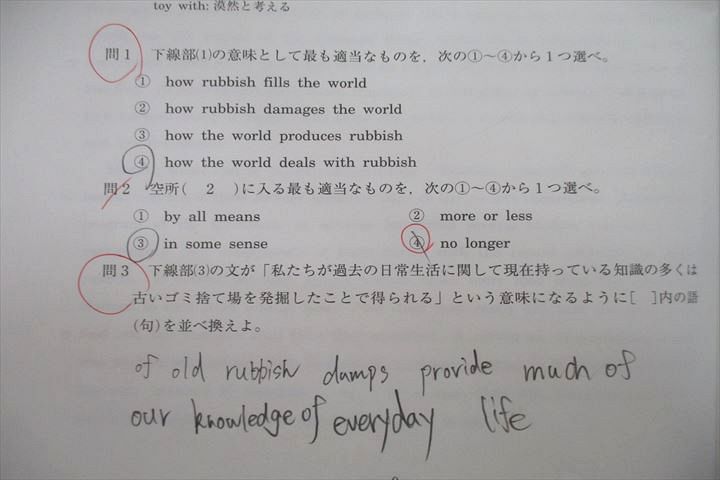 toy with: 漠然と考える
問1 下線部(1)の意味として最も適当なものを，次の①～④から1つ選べ。
① how rubbish fills the world
② how rubbish damages the world
③ how the world produces rubbish
④ how the world deals with rubbish
問2 空所( 2 )に入る最も適当なものを，次の①～④から1つ選べ。
① by all means ② more or less
③ in some sense ④ no longer
問3 下線部(3)の文が「私たちが過去の日常生活に関して現在持っている知識の多くは
古いゴミ捨て場を発掘したことで得られる」という意味になるように[ ]内の語
(句)を並べ換えよ。
of old rubbish dumps provide much of
our knowledge of everyday life